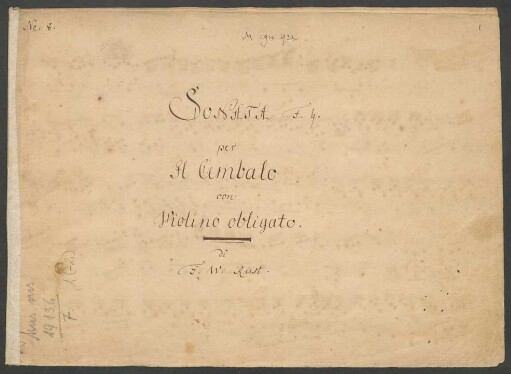 No: 8.
1
M 1910 922
SONATA. F. ♮.
per
Il Cimbalo
con
Violino obligato.
di
F. W. Rust.
Mus ms
19156
7